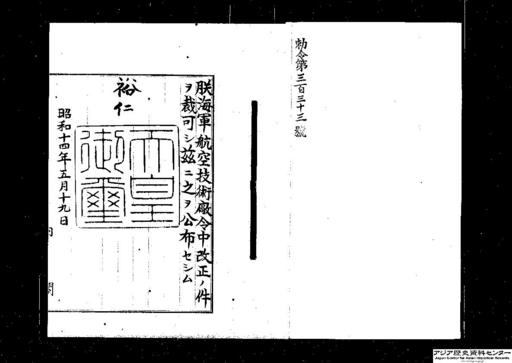 勅令第三百三十三號
朕海軍航空技術廠令中改正ノ件
ヲ裁可シ茲ニ之ヲ公布セシム
裕仁
天皇
御璽
昭和十四年五月十九日
内閣
アジア歴史資料センター
Japan Center for Asian Historical Records